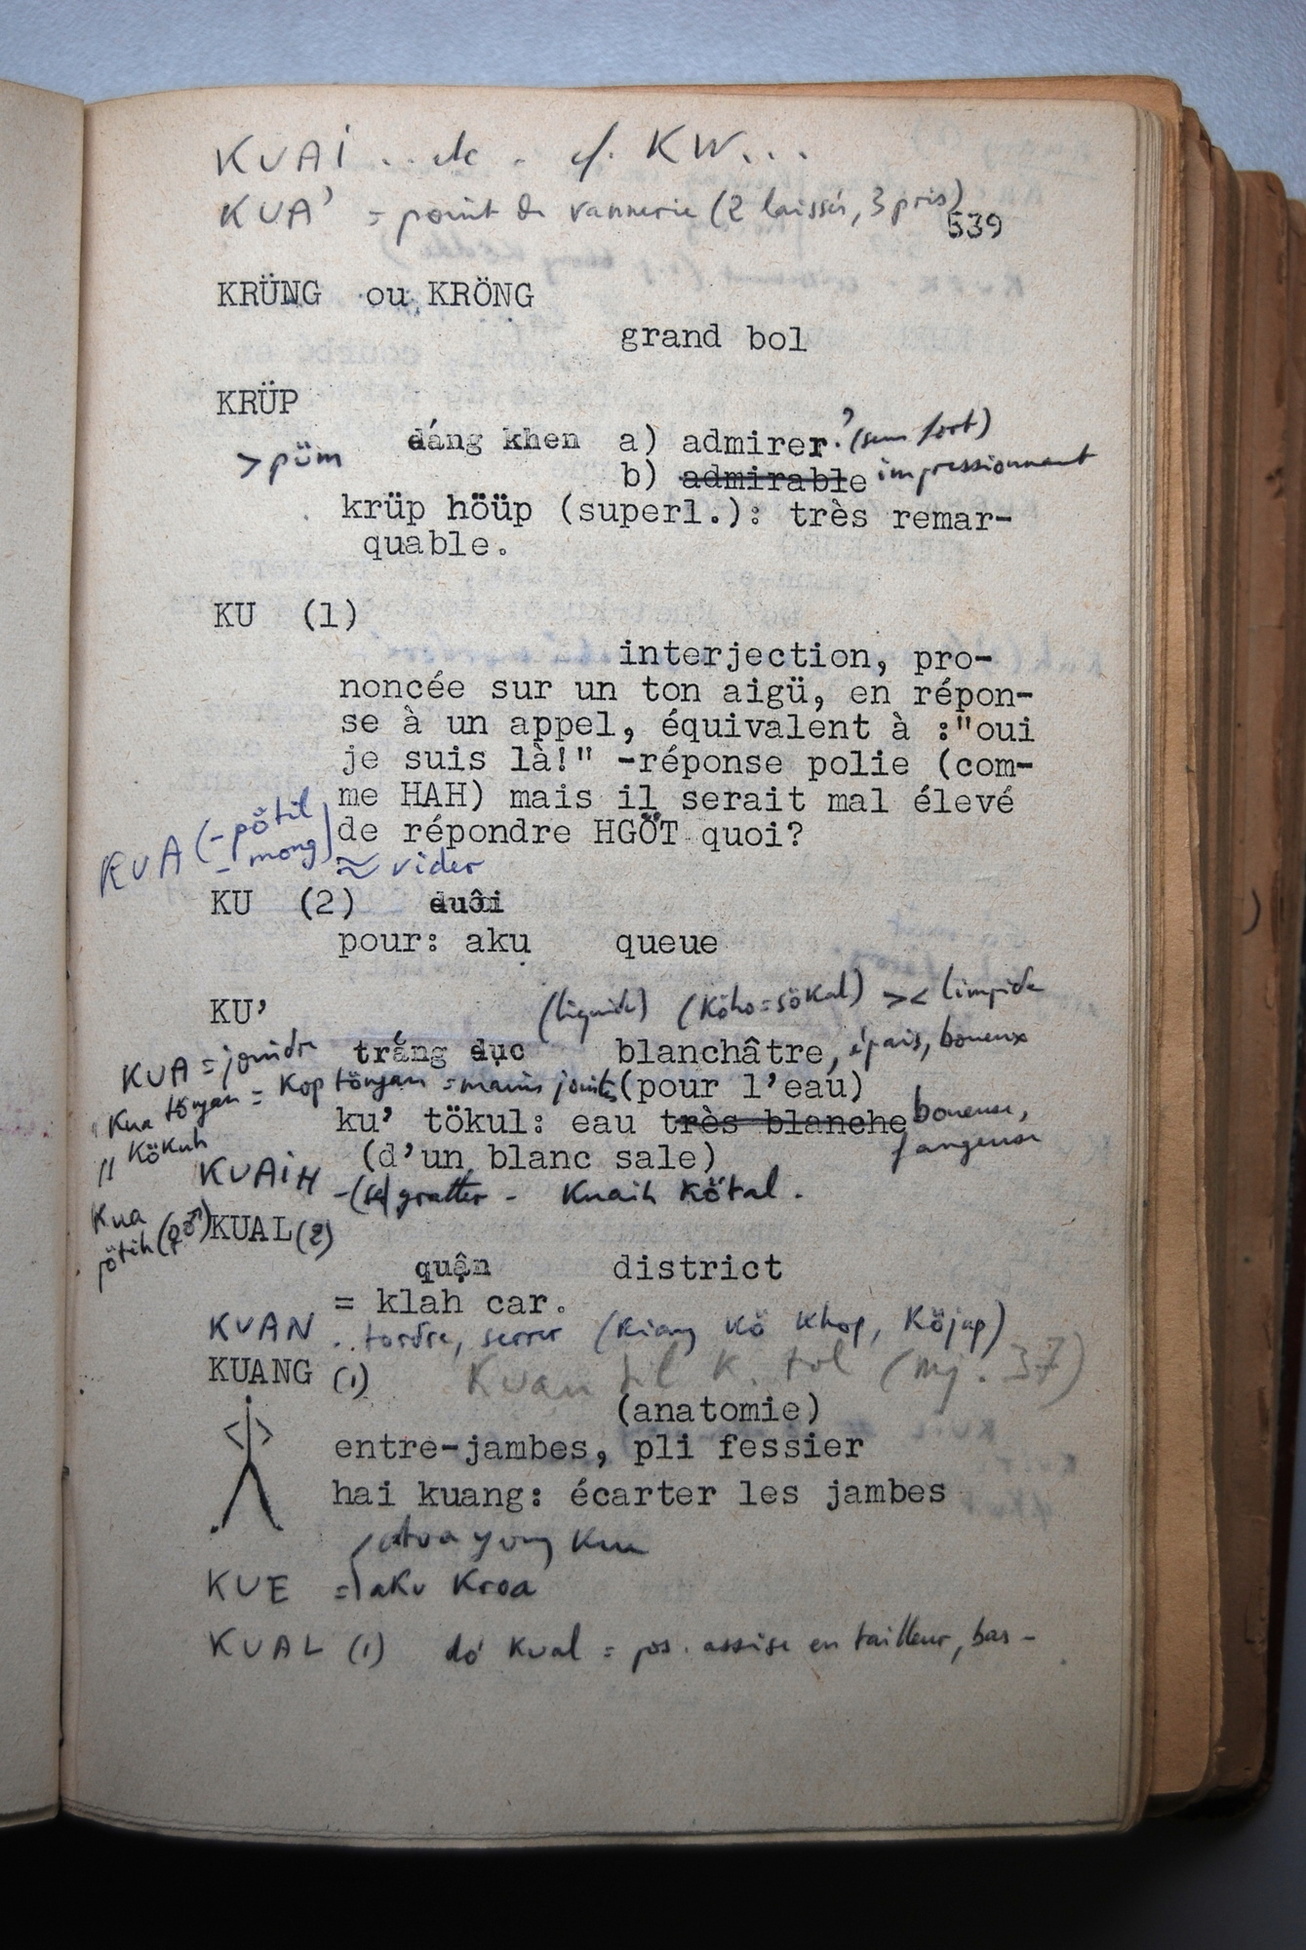 KUAI .. etc . cf. KW...
KUA' = point de vannerie (2 laissés, 3 pris)
539
KRÜNG ou KRÖNG
grand bol
KRÜP
đáng khen a) admirer ? (sens fort)
> püm b) admirable impressionnant
krüp höüp (superl.): très remar-
quable.
KU (1)
interjection, pro-
noncée sur un ton aigü, en répon-
se à un appel, équivalent à :"oui
je suis là!" -réponse polie (com-
me HAH) mais il serait mal élevé
de répondre HGÖT quoi?
KUA (- pötil
- mong) ≈ vider
KU (2) đuôi
pour: aku queue
KU' (liquide) (Köho = sökal) >< limpide
trắng đục blanchâtre, épais, boueux
KUA = joindre
(pour l'eau)
Kua töngan = Kop töngan = mains jointes
ku' tökul: eau très blanche boueuse,
fangeuse
// Kökuh
(d'un blanc sale)
KUAIH - (se) gratter - Kuaih Kötal .
Kua
pötih (♀♂)
KUAL (2)
quận district
= klah car.
KUAN .. tordre, serrer (Kiang Kö Khop, Köjap)
KUANG (1) Kuan K. tol (mj. 37)
(anatomie)
entre-jambes, pli fessier
hai kuang: écarter les jambes
KUE = aku Kroa
KUAL (1) dó Kual = pos. assise en tailleur, bas -